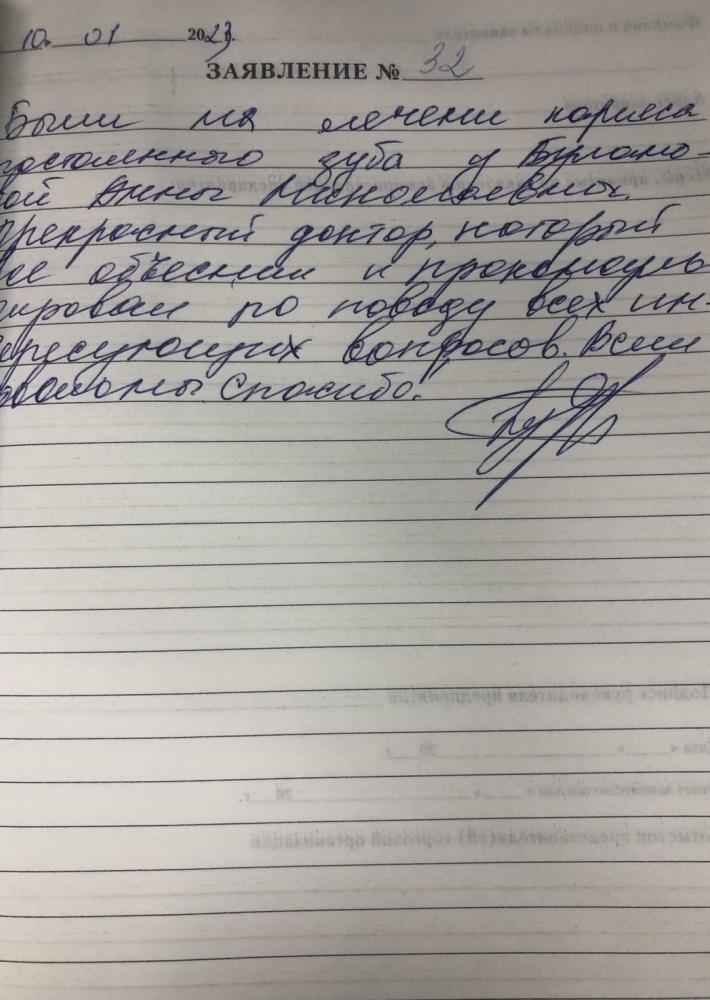 10. 01 2023
ЗАЯВЛЕНИЕ № 32
Были на лечени кариеса
постоянного зуба у
ой Анны Николаевны.
Прекрасный доктор, который
все объеснил и проконсуль
тировал по поводу всех ин-
тересующих вопросов. Всем
довольны Спасибо!